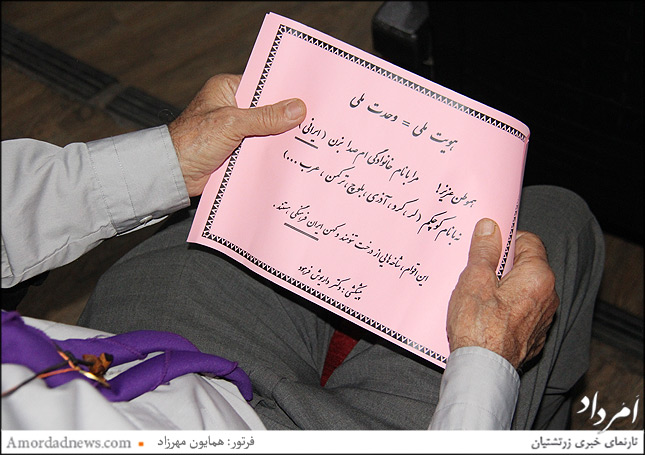 هویت ملی = وحدت ملی
هموطن عزیز! مرا با نام خانوادگی ام صدا بزن (ایرانی)
نه با نام کوچکم (لر، کرد، آذری، بلوچ، ترکمن، عرب ...)
این اقوام، شاخه‌هایی از درخت تنومند و کهن ایران فرهنگی هستند.
پیشکشی: دکتر داریوش فرهود
اَمرداد
تارنمای خبری زرتشتیان
فرتور: همایون مهرزاد
Amordadnews.com